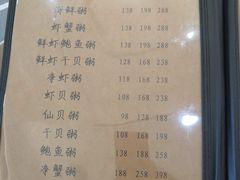 海鲜粥 138 198 288
虾蟹粥 138 198 288
鲜虾鲍鱼粥 138 188 288
鲜虾干贝粥 128 168 238
净虾粥 118 168 238
虾贝粥 118 168 238
仙贝粥 98 128 188
干贝粥 108 168 198
鲍鱼粥 138 188 258
净蟹粥 188 258 398